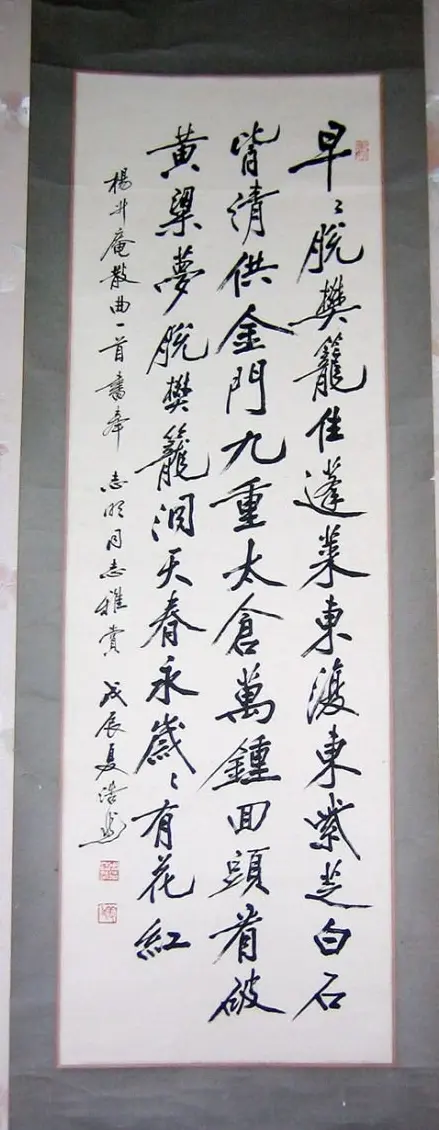 早〻脱樊籠住蓬莱東復東紫芝白石
皆清供金門九重太倉萬鍾回頭看破
黄粱夢脱樊籠洞天春永歲〻有花紅
楊升庵散曲一首書奉 志明同志雅賞 戊辰夏浩